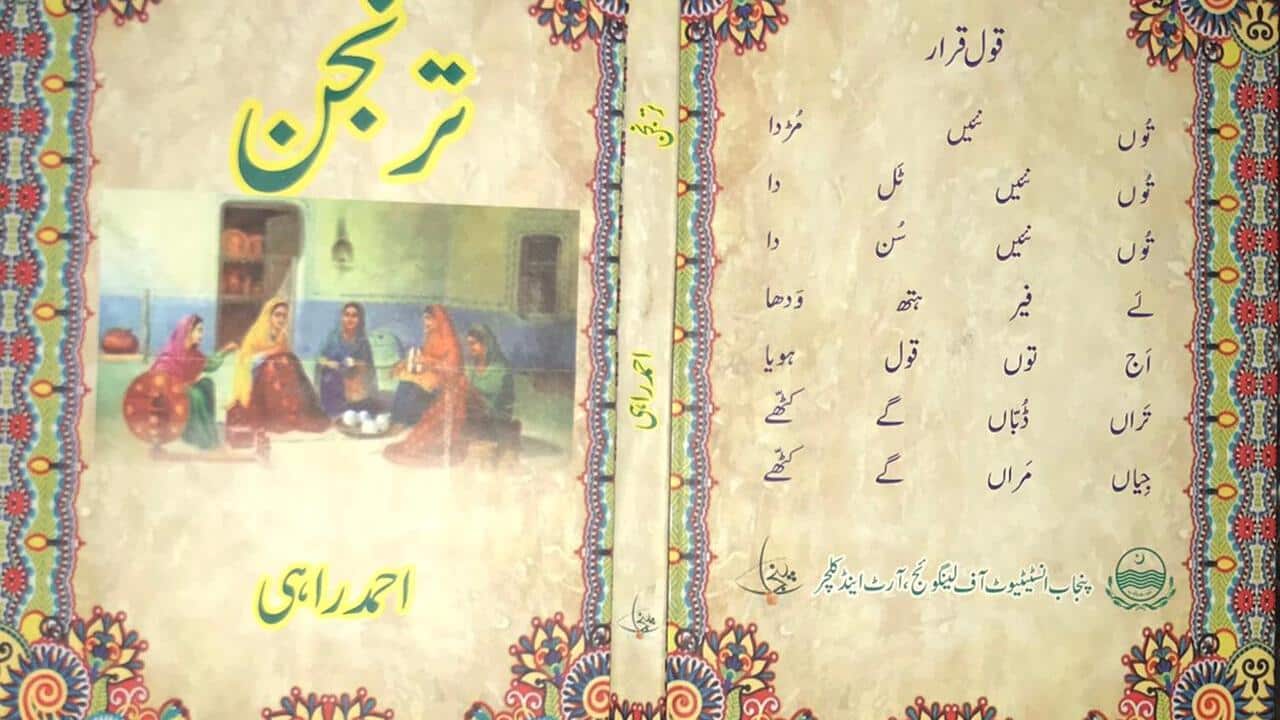 ترنجن
احمد راہی
ترنجن
احمد راہی
قول قرار
تُوں نئیں مُڑدا
تُوں نئیں ٹَل دا
تُوں نئیں سُن دا
لَے فیر ہتھ وَدھا
اَج توں قول ہویا
تَراں ڈُبّاں گے کٹھّے
جِیاں مَراں گے کٹھّے
پنجاب انسٹیٹیوٹ آف لینگوئج، آرٹ اینڈ کلچر